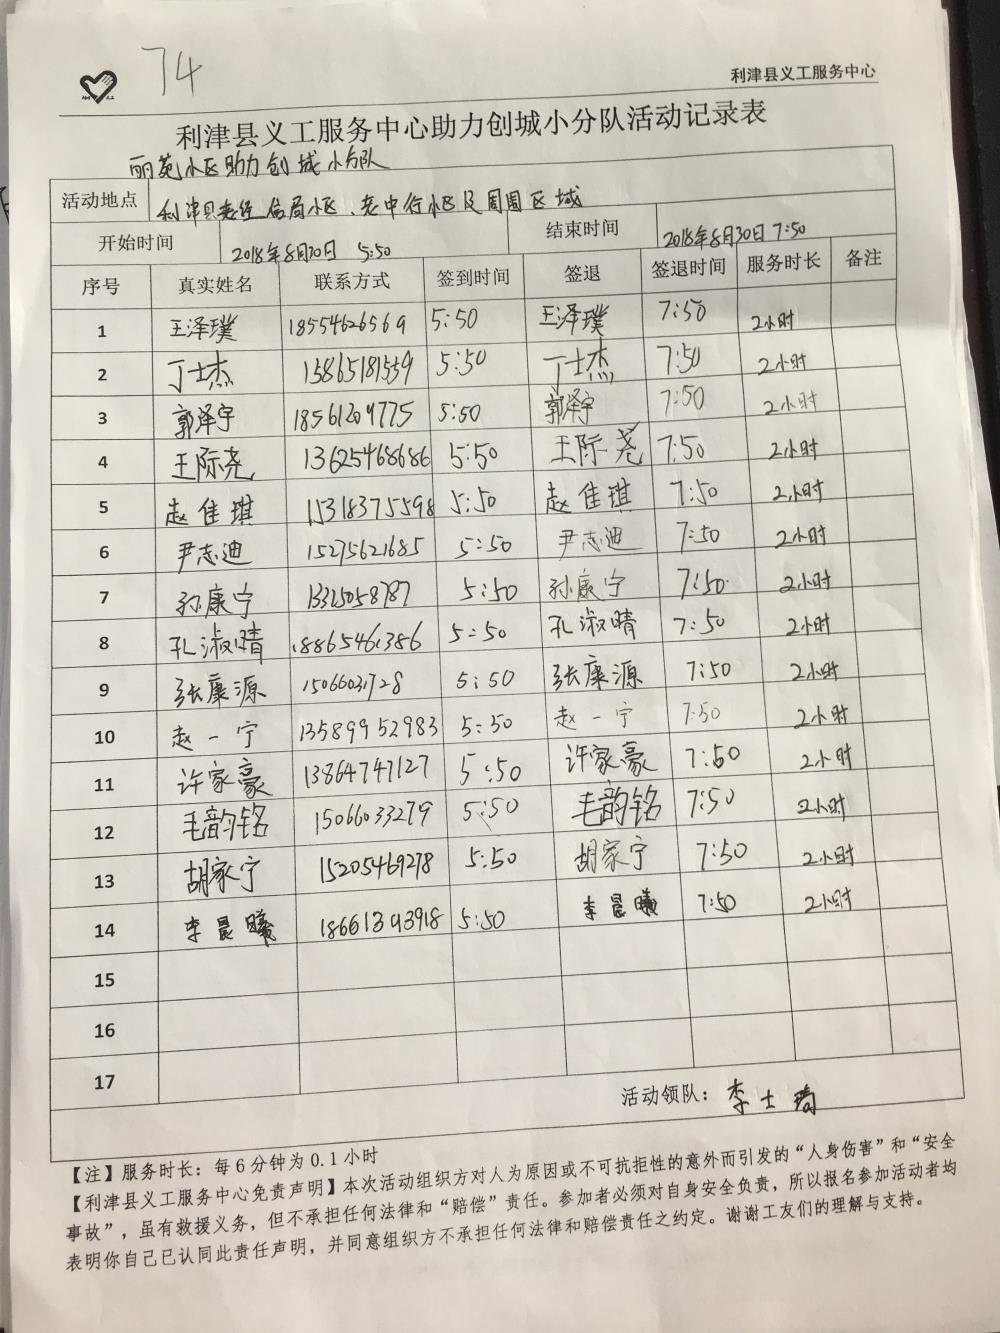 74
利津县义工服务中心
利津县义工服务中心助力创城小分队活动记录表
丽苑小区助力创城小分队
活动地点 利津县老经信局小区、老中行小区及周围区域
开始时间 2018年8月30日 5:50 结束时间 2018年8月30日 7:50
序号 真实姓名 联系方式 签到时间 签退 签退时间 服务时长 备注
1 王泽璞 18554626569 5:50 王泽璞 7:50 2小时
2 丁士杰 13865181559 5:50 丁士杰 7:50 2小时
3 郭泽宇 18561209775 5:50 郭泽宇 7:50 2小时
4 王际尧 13625468686 5:50 王际尧 7:50 2小时
5 赵佳琪 15318375598 5:50 赵佳琪 7:50 2小时
6 尹志迪 15275621685 5:50 尹志迪 7:50 2小时
7 孙康宁 5:50 孙康宁 7:50 2小时
8 孔淑晴 5:50 孔淑晴 7:50 2小时
9 张康源 5:50 张康源 7:50 2小时
10 赵一宁 13589952983 5:50 赵一宁 7:50 2小时
11 许家豪 13864741127 5:50 许家豪 7:50 2小时
12 毛韵铭 15066033279 5:50 毛韵铭 7:50 2小时
13 胡家宁 15205469278 5:50 胡家宁 7:50 2小时
14 李晨曦 5:50 李晨曦 7:50 2小时
15
16
17
活动领队：李士
【注】服务时长：每6分钟为0.1小时
【利津县义工服务中心免责声明】本次活动组织方对人为原因或不可抗拒性的意外而引发的“人身伤害”和“安全
事故”，虽有救援义务，但不承担任何法律和“赔偿”责任。参加者必须对自身安全负责，所以报名参加活动者均
表明你自己已认同此责任声明，并同意组织方不承担任何法律和赔偿责任之约定。谢谢工友们的理解与支持。